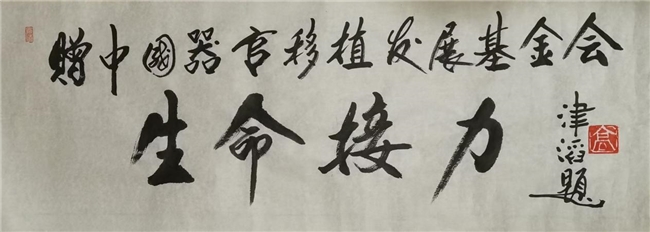 赠中國器官移植发展基金会
生命接力
津滔題